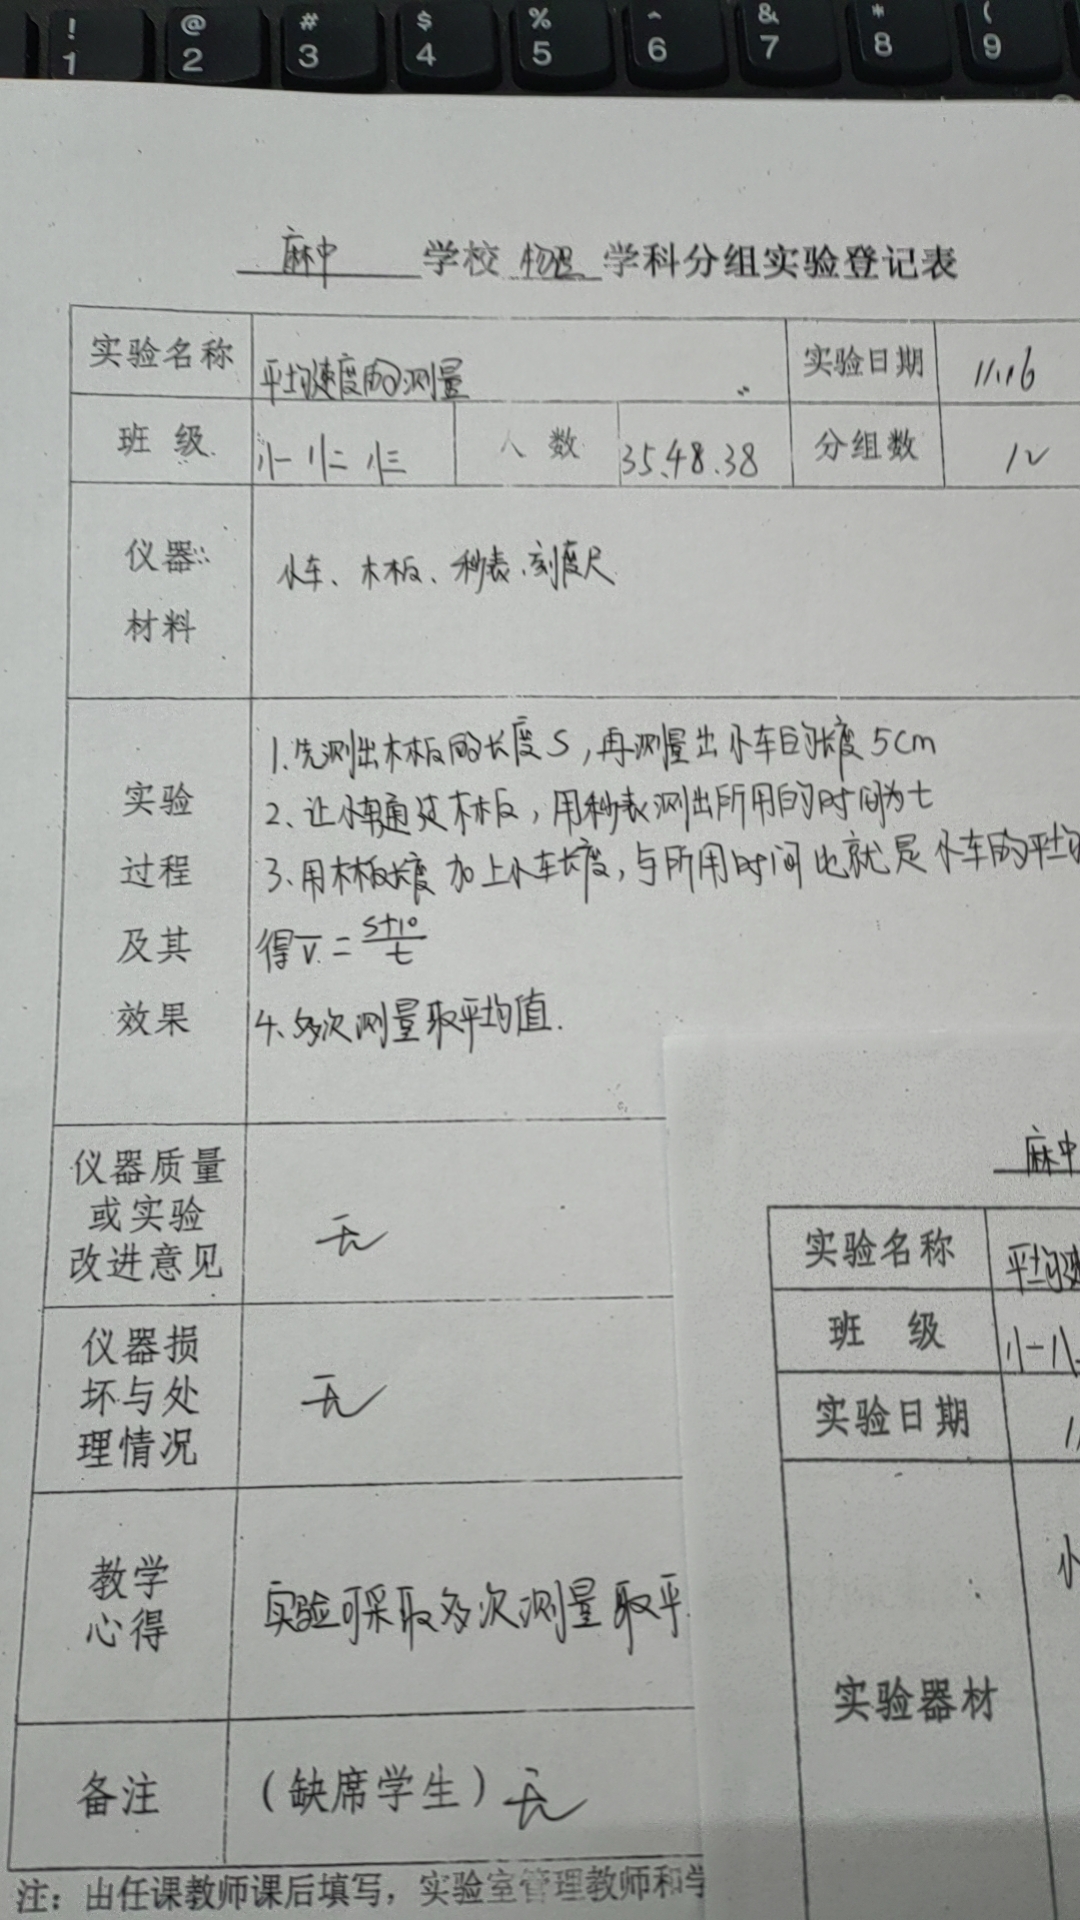 ! @ # $ % ^ & * (
1 2 3 4 5 6 7 8 9
麻中 学校 物理 学科分组实验登记表
实验名称 平均速度的测量 实验日期 11.16
班 级 八一 八二 八三 人 数 35.48.38 分组数 12
仪器
材料
小车、木板、秒表、刻度尺
实验
过程
及其
效果
1.先测出木板的长度S,再测量出小车的长度5cm
2、让小车通过木板,用秒表测出所用的时间为t
3、用木板长度加上小车长度,与所用时间也就是小车的平均
得v̄=(s+10)/t
4、多次测量取平均值.
仪器质量
或实验
改进意见
无
仪器损
坏与处
理情况
无
教学
心得
实验可采取多次测量取平
备注 (缺席学生)无
注:由任课教师课后填写,实验室管理教师和学
麻中
实验名称 平均速
班 级 八一八
实验日期
实验器材
小